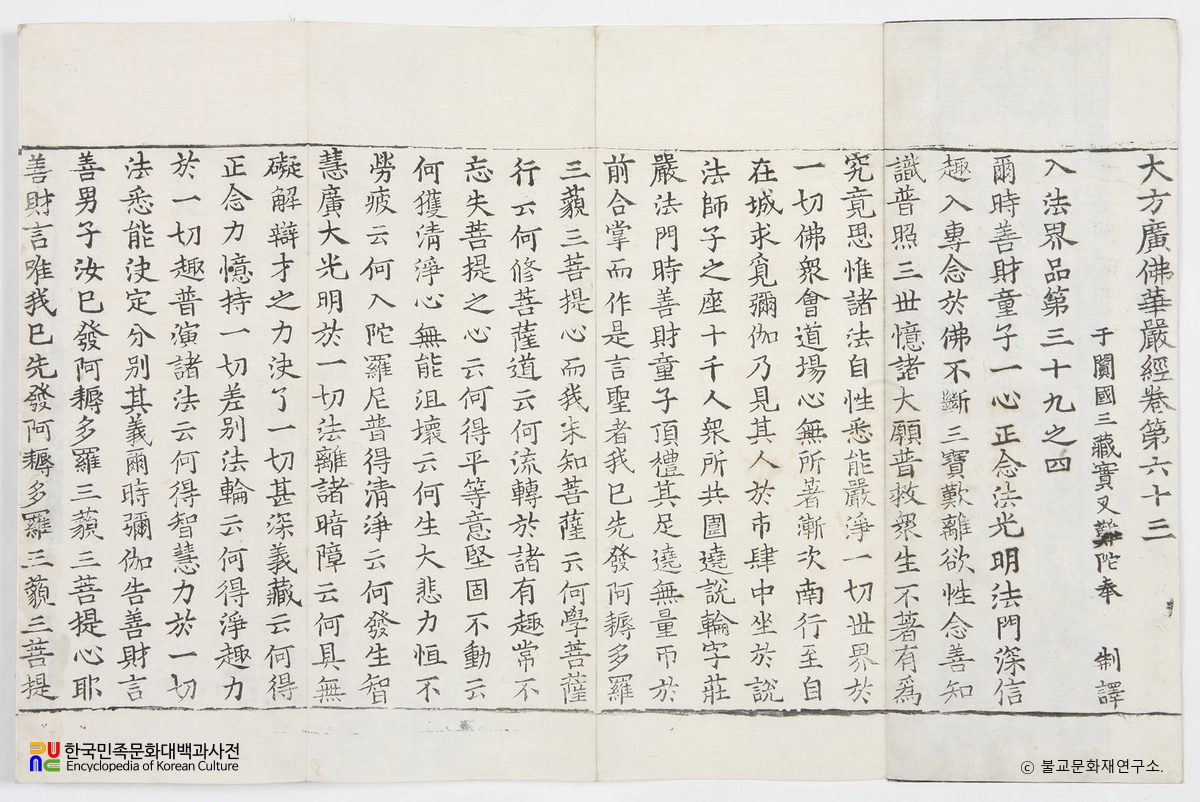 大方廣佛華嚴經卷第六十三
于闐國三藏實叉難陀奉 制譯
入法界品第三十九之四
爾時善財童子一心正念法光明法門深信
趣入專念於佛不斷三寶歎離欲性念善知
識普照三世憶諸大願普救衆生不著有爲
究竟思惟諸法自性悉能嚴淨一切世界於
一切佛衆會道場心無所著漸次南行至自
在城求覓彌伽乃見其人於市肆中坐於說
法師子之座十千人衆所共圍遶說輪字莊
嚴法門時善財童子頂禮其足遶無量帀於
前合掌而作是言聖者我已先發阿耨多羅
三藐三菩提心而我未知菩薩云何學菩薩
行云何修菩薩道云何流轉於諸有趣常不
忘失菩提之心云何得平等意堅固不動云
何獲清淨心無能沮壞云何生大悲力恒不
勞疲云何入陀羅尼普得清淨云何發生智
慧廣大光明於一切法離諸暗障云何具無
礙解辯才之力決了一切甚深義藏云何得
正念力憶持一切差別法輪云何得淨趣力
於一切趣普演諸法云何得智慧力於一切
法悉能決定分別其義爾時彌伽告善財言
善男子汝已發阿耨多羅三藐三菩提心耶
善財言唯我已先發阿耨多羅三藐三菩提
한국민족문화대백과사전
Encyclopedia of Korean Culture
ⓒ 불교문화재연구소.